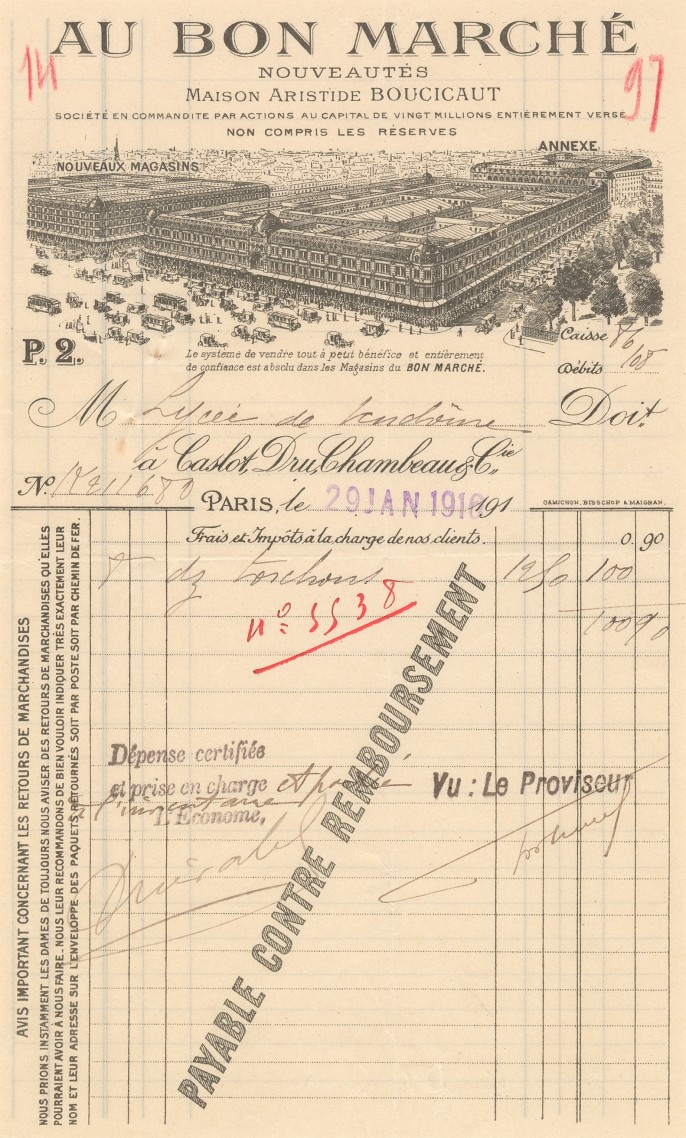 AU BON MARCHÉ
14
97
NOUVEAUTÉS
MAISON ARISTIDE BOUCICAUT
SOCIÉTÉ EN COMMANDITE PAR ACTIONS AU CAPITAL DE VINGT MILLIONS ENTIÈREMENT VERSÉ
NON COMPRIS LES RÉSERVES
NOUVEAUX MAGASINS
ANNEXE
P. 2.
Le système de vendre tout à petit bénéfice et entièrement
de confiance est absolu dans les Magasins du BON MARCHÉ.
Caisse 86
Débits 108
M Lycée de Vendôme Doit
à Caslot, Dru, Chambeau & Cie
No
PARIS, le 29 JAN 1916 191
GAMICHON, BISSCHOP & MAIGNAN.
Frais et Impôts à la charge de nos clients. 0.90
8 dz torchons 12 50 100
100 90
No 5538
PAYABLE CONTRE REMBOURSEMENT
Dépense certifiée
et prise en charge et passé
à l'inventaire
L'Économe,
Vu : Le Proviseur
AVIS IMPORTANT CONCERNANT LES RETOURS DE MARCHANDISES
NOUS PRIONS INSTAMMENT LES DAMES DE TOUJOURS NOUS AVISER DES RETOURS DE MARCHANDISES QU'ELLES
POURRAIENT AVOIR À NOUS FAIRE. NOUS LEUR RECOMMANDONS DE BIEN VOULOIR INDIQUER TRÈS EXACTEMENT LEUR
NOM ET LEUR ADRESSE SUR L'ENVELOPPE DES PAQUETS RETOURNÉS SOIT PAR POSTE SOIT PAR CHEMIN DE FER.